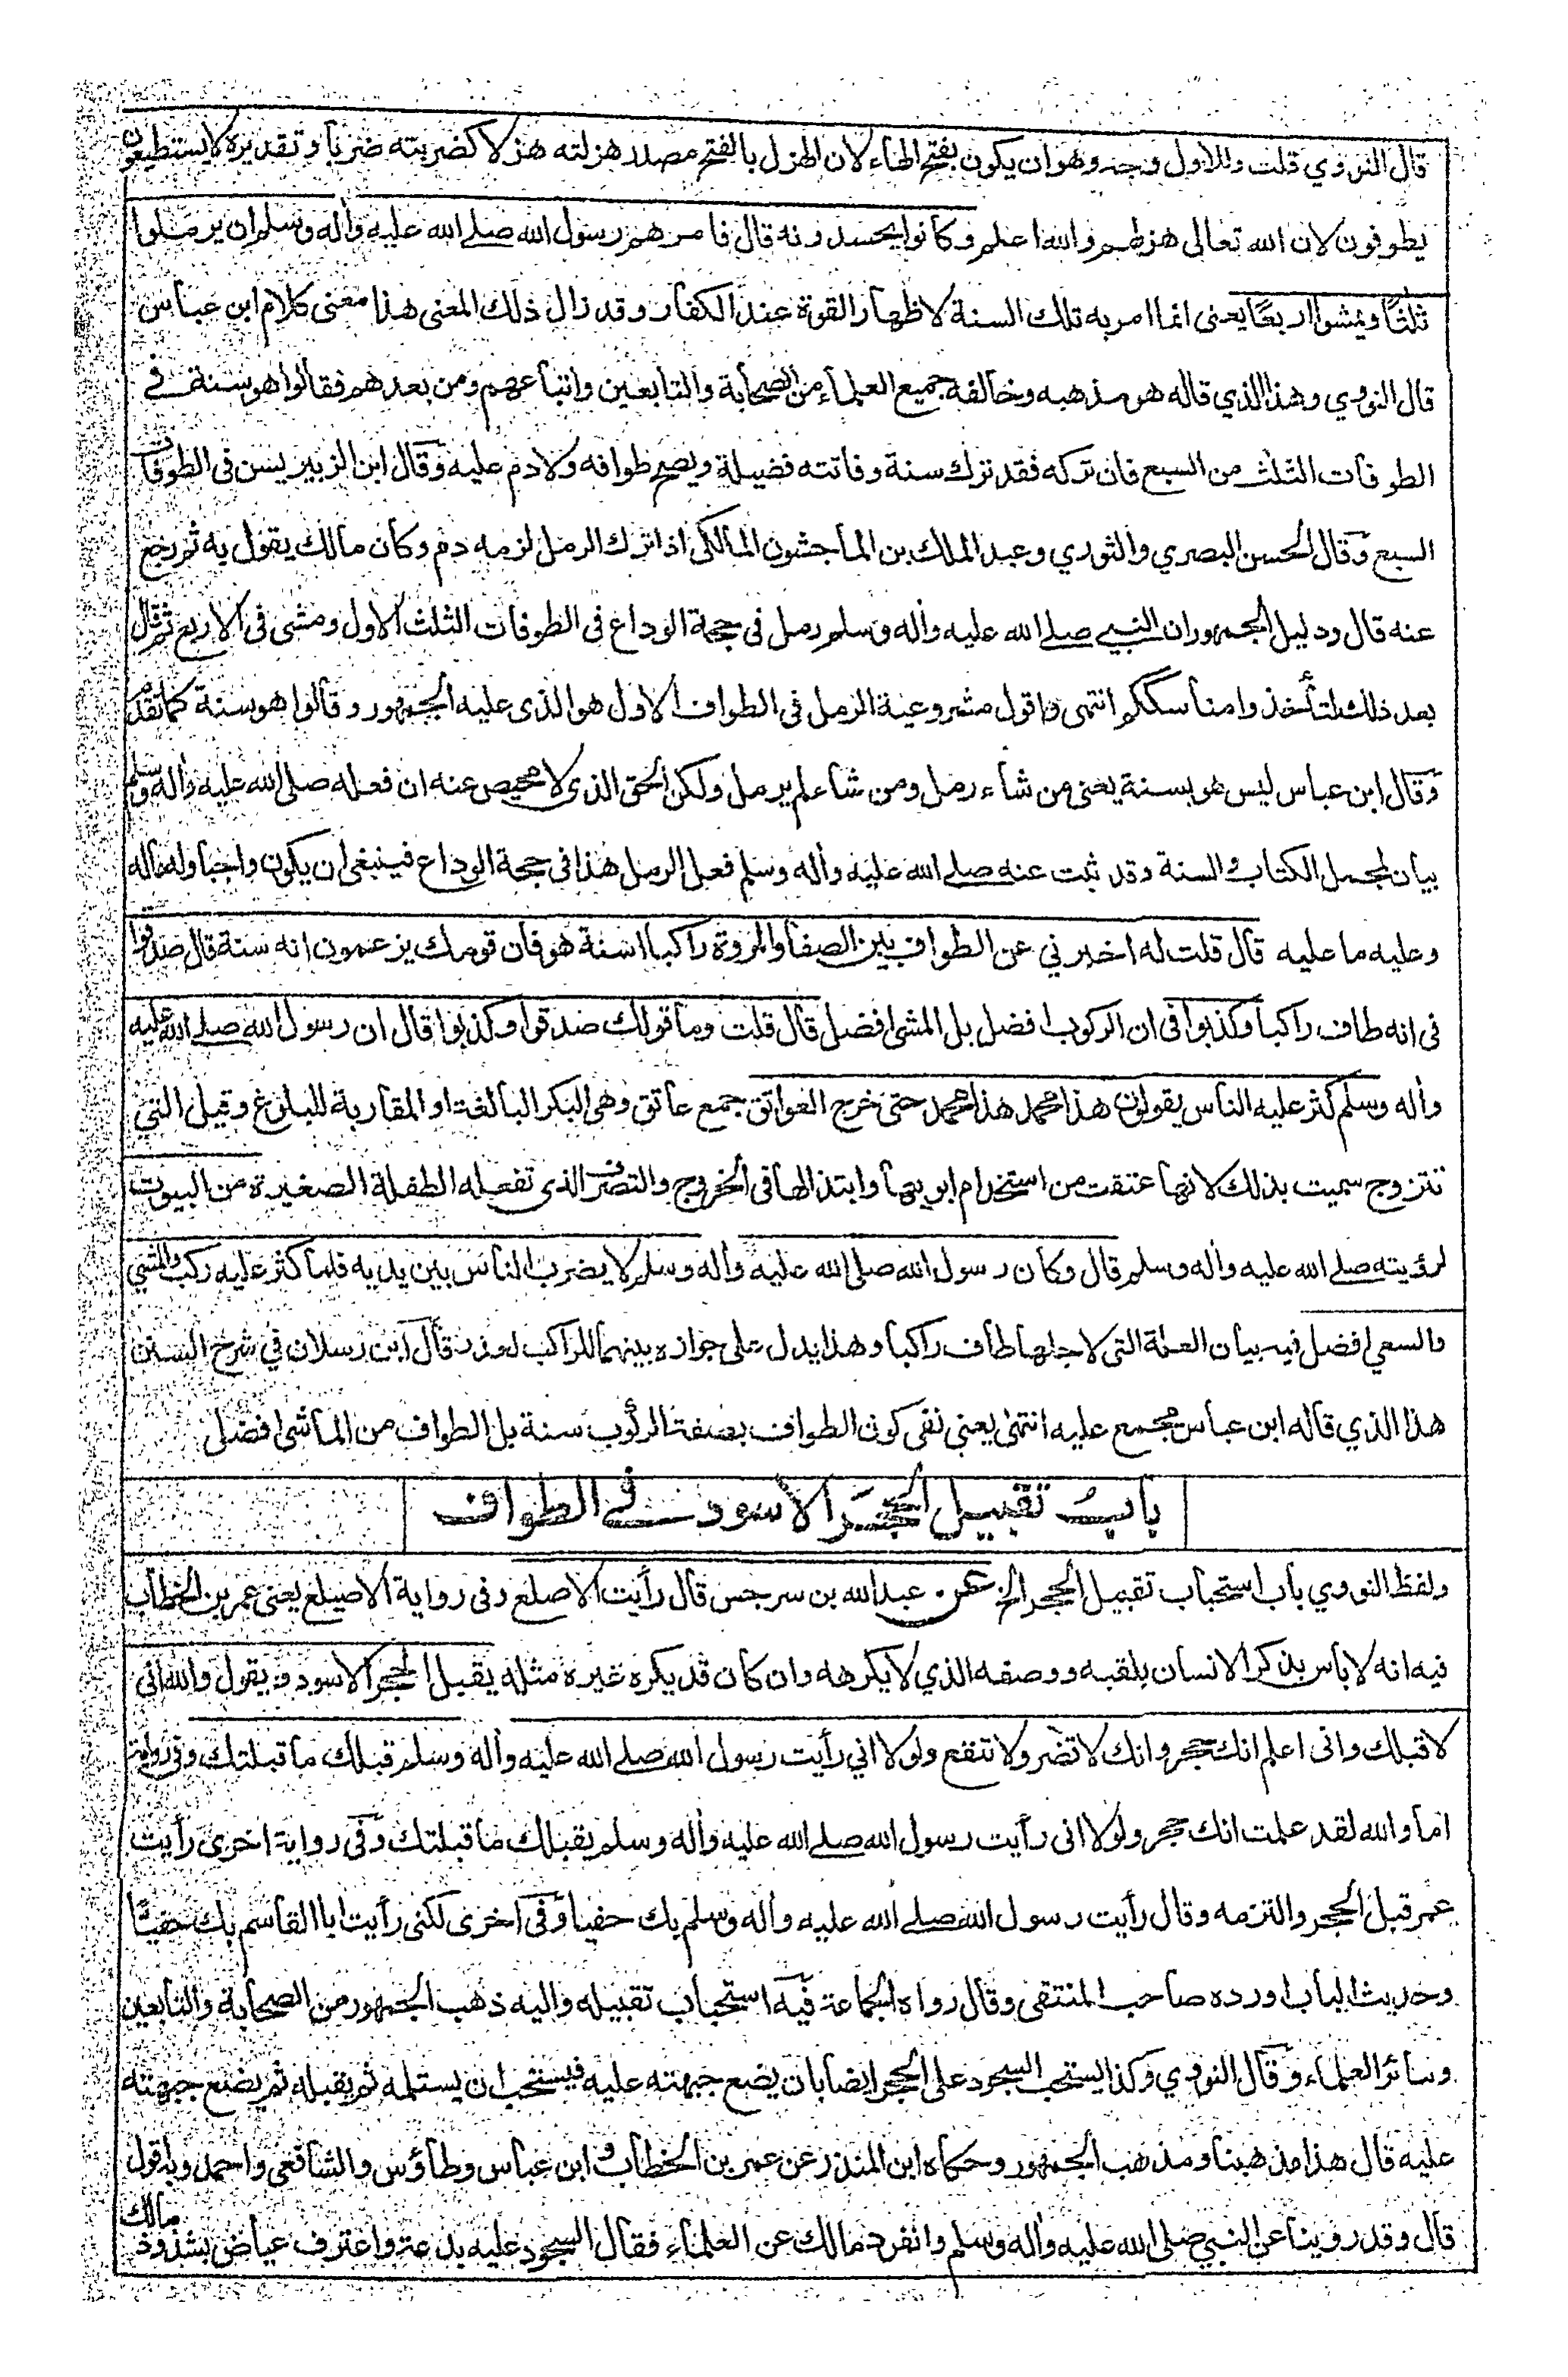 قال النووي قلت وللاول وجه وهو ان يكون بفتح الهاء لان الهزل بالفتح مصدر هزلته هزلا كضربته ضربا وتقديره لا يستطيعون
يطوفون لان الله تعالى هزلهم والله اعلم وكانوا يحسدونه قال فامرهم رسول الله صلى الله عليه واٰله وسلم ان يرملوا
ثلثًا ويمشوا اربعًا يعنى انما امر به تلك السنة لاظهار القوة عند الكفار وقد زال ذلك المعنى هذا معنى كلام ابن عباس
قال النووي وهذا الذي قاله هو مذهبه وخالفه جميع العلماء من الصحابة والتابعين واتباعهم ومن بعدهم فقالوا هو سنة في
الطوفات الثلث من السبع فان تركه فقد ترك سنة وفاتته فضيلة ويصح طوافه ولا دم عليه وقال ابن الزبير يسن فى الطوفات
السبع وقال الحسن البصري والثوري وعبد الملك بن الماجشون المالكى اذا ترك الرمل لزمه دم وكان مالك يقول به ثم رجع
عنه قال ودليل الجمهور ان النبي صلى الله عليه واٰله وسلم رمل فى حجة الوداع فى الطوفات الثلث الاول ومشى فى الاربع ثم قال
بعد ذلك لتأخذوا مناسككم انتهى واقول مشروعية الرمل فى الطواف الاول هو الذى عليه الجمهور وقالوا هو سنة كما تقدم
وقال ابن عباس ليس هو بسنة يعنى من شاء رمل ومن شاء لم يرمل ولكن الحق الذى لا محيص عنه ان فعله صلى الله عليه واٰله وسلم
بيان لمجمل الكتاب والسنة وقد ثبت عنه صلى الله عليه واٰله وسلم فعل الرمل هذا فى حجة الوداع فينبغى ان يكون واجبا وله ماله
وعليه ما عليه قال قلت له اخبرني عن الطواف بين الصفا والمروة راكبا اسنة هو فان قومك يزعمون انه سنة قال صدقوا
فى انه طاف راكبا وكذبوا فى ان الركوب افضل بل المشى افضل قال قلت وما قولك صدقوا وكذبوا قال ان رسول الله صلى الله عليه
واٰله وسلم كثر عليه الناس يقولون هذا محمد هذا محمد حتى خرج العواتق جمع عاتق وهى البكر البالغة او المقاربة للبلوغ وقيل التى
تتزوج سميت بذلك لانها عتقت من استخدام ابويها وابتذالها فى الخروج والتصرف الذى تفعله الطفلة الصغيرة من البيوت
لرؤيته صلى الله عليه واٰله وسلم قال وكان رسول الله صلى الله عليه واٰله وسلم لا يضرب الناس بين يديه فلما كثر عليه ركب والمشي
والسعي افضل فيه بيان العلة التى لاجلها طاف راكبا وهذا يدل على جوازه بينهما للراكب لعذر قال ابن رسلان في شرح السنن
هذا الذي قاله ابن عباس مجمع عليه انتهى يعني نفى كون الطواف بصفة الركوب سنة بل الطواف من الماشى افضل
باب تقبيل الحجر الاسود في الطواف
ولفظ النووي باب استحباب تقبيل الحجر الخ عن عبد الله بن سرجس قال رأيت الاصلع وفى رواية الاصيلع يعنى عمر بن الخطاب
فيه انه لا باس بذكر الانسان بلقبه ووصفه الذي لا يكرهه وان كان قد يكره غيره مثله يقبل الحجر الاسود ويقول والله انى
لاقبلك وانى اعلم انك حجر وانك لا تضر ولا تنفع ولولا اني رأيت رسول الله صلى الله عليه واٰله وسلم قبلك ما قبلتك وفى رواية
اما والله لقد علمت انك حجر ولولا انى رأيت رسول الله صلى الله عليه واٰله وسلم يقبلك ما قبلتك وفى رواية اخرى رأيت
عمر قبل الحجر والتزمه وقال رأيت رسول الله صلى الله عليه واٰله وسلم بك حفيا وفى اخرى لكنى رأيت ابا القاسم بك حفيًّا
وحديث الباب اورده صاحب المنتقى وقال رواه الجماعة فيه استحباب تقبيله واليه ذهب الجمهور من الصحابة والتابعين
وسائر العلماء وقال النووي وكذا يستحب السجود على الحجر ايضا بان يضع جبهته عليه فيستحب ان يستلمه ثم يقبله ثم يضع جبهته
عليه قال هذا مذهبنا ومذهب الجمهور وحكاه ابن المنذر عن عمر بن الخطاب وابن عباس وطاؤس والشافعى واحمد وبه اقول
قال وقد روينا عن النبي صلى الله عليه واٰله وسلم وانفرد مالك عن العلماء فقال السجود عليه بدعة واعترف عياض بشذوذ مالك